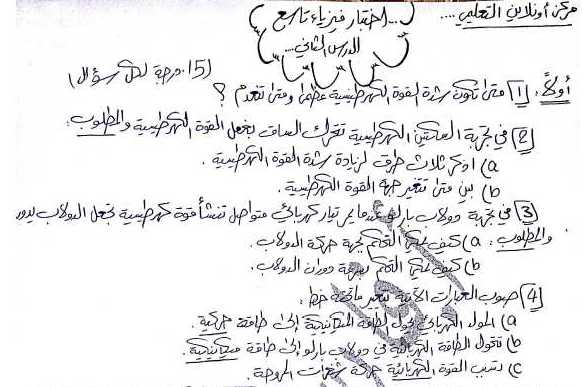 مركز أونلاين التعليمي ....
... اختبار فيزياء تاسع
الدرس الثاني ...
(15 درجة لكل سؤال)
أولاً: 1] متى تكون شدة القوة الكهرطيسية عظمى ومتى تنعدم ؟
2] في تجربة السكتين الكهرطيسية تتحرك الساق بفعل القوة الكهرطيسية والمطلوب:
a) اذكر ثلاث طرق لزيادة شدة القوة الكهرطيسية .
b) بين متى تتغير جهة القوة الكهرطيسية
3] في تجربة دولاب بارلو عندما يمر تيار كهربائي متواصل تنشأ قوة كهرطيسية تجعل الدولاب يدور
والمطلوب: a) كيف يمكن التحكم بجهة حركة الدولاب.
b) كيف يمكن التحكم بسرعة دوران الدولاب.
4] صوب العبارات الآتية بتغيير ما تحته خط:
a) المولد الكهربائي يحول الطاقة الميكانيكية إلى طاقة حركية.
b) تتحول الطاقة الكهربائية في دولاب بارلو إلى طاقة ميكانيكية.
c) تسبب القوة الكهربائية حركة شفرات المروحة.